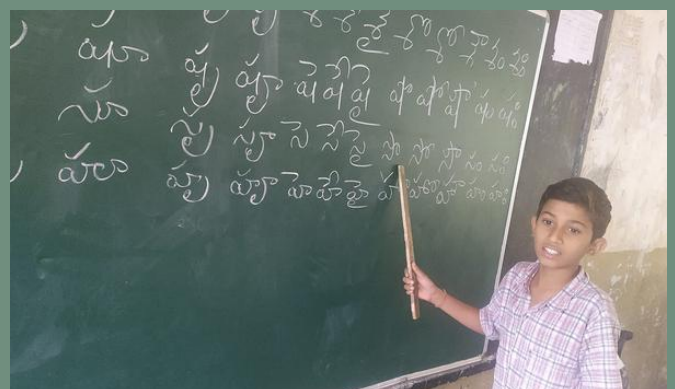 శై శొ శో శౌ శం శః
షూ షృ షౄ షె షే షై షొ షో షౌ షం షః
సూ సృ సౄ సె సే సై సొ సో సౌ సం సః
హూ హృ హౄ హె హే హై హొ హో హౌ హం హః